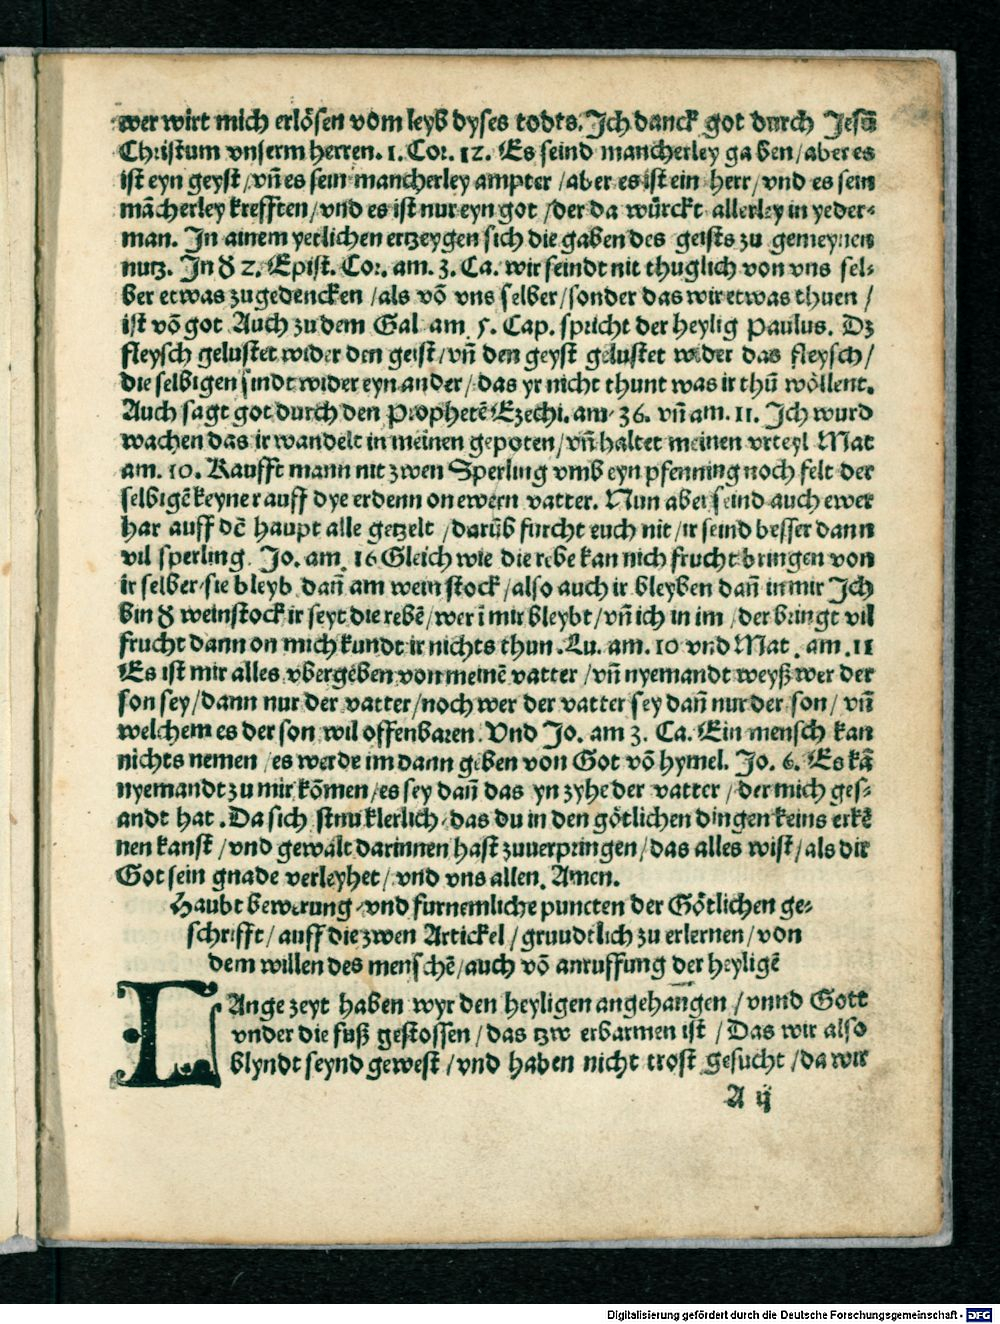 wer wirt mich erlösen vom leyb dyses todts. Ich danck got durch Jesū
Christum vnserm herren. 1. Cor. 12. Es seind mancherley gaben/ aber es
ist eyn geyst/ vñ es sein mancherley ampter/ aber es ist ein herr/ vnd es sein
mācherley krefften/ vnd es ist nur eyn got/ der da würckt allerley in yeder⸗
man. In ainem yetlichen ertzeygen sich die gaben des geists zu gemeynen
nutz. In ð 2. Epist. Cor. am. 3. Ca. wir seindt nit thuglich von vns sel⸗
ber etwas zu gedencken/ als vō vns selber/ sonder das wir etwas thuen/
ist vō got Auch zu dem Gal am 5. Cap. spricht der heylig Paulus. Dz
fleysch gelustet wider den geist/ vñ den geyst gelustet wider das fleysch/
die selbigen sindt wider eyn ander/ das yr nicht thunt was ir thū wöllent.
Auch sagt got durch den Prophetē Ezechi. am. 36. vñ am. 11. Ich wurd
wachen das ir wandelt in meinen gepoten/ vñ haltet meinen vrteyl Mat
am. 10. Kaufft mann nit zwen Sperling vmb eyn pfenning noch felt der
selbigē keyner auff dye erdenn on ewern vatter. Nun aber seind auch ewer
har auff dē haupt alle getzelt/ darūb furcht euch nit/ ir seind besser dann
vil sperling. Jo. am. 16 Gleich wie die rebe kan nich frucht bringen von
ir selber sie bleyb dañ am weinstock/ also auch ir bleyben dañ in mir Ich
bin ð weinstock ir seyt die rebē/ wer ī mir bleybt/ vñ ich in im/ der bringt vil
frucht dann on mich kundt ir nichts thun. Lu. am. 10 vnd Mat. am. 11
Es ist mir alles vbergeben von meinē vatter/ vñ nyemandt weyß wer der
son sey/ dann nur der vatter/ noch wer der vatter sey dañ nur der son/ vñ
welchem es der son wil offenbaren. Vnd Jo. am 3. Ca. Ein mensch kan
nichts nemen/ es werde im dann geben von Got vō hymel. Jo. 6. Es kā
nyemandt zu mir kōmen/ es sey dañ das yn zyhe der vatter/ der mich ges⸗
andt hat. Da sich strnklerlich das du in den götlichen dingen keins erkē
nen kanst/ vnd gewalt darinnen hast zuuerpringen/ das alles wist/ als dir
Got sein gnade verleyhet/ vnd vns allen. Amen.
Haubt bewerung vnd furnemliche puncten der Götlichen ge⸗
schrifft/ auff die zwen Artickel/ gruudtlich zu erlernen/ von
dem willen des menschē/ auch vō anruffung der heyligē
LAnge zeyt haben wyr den heyligen angehangen/ vnnd Gott
vnder die füß gestossen/ das tzw erbarmen ist/ Das wir also
blyndt seynd gewest/ vnd haben nicht trost gesucht/ da wir
A ij
Digitalisierung gefördert durch die Deutsche Forschungsgemeinschaft - DFG